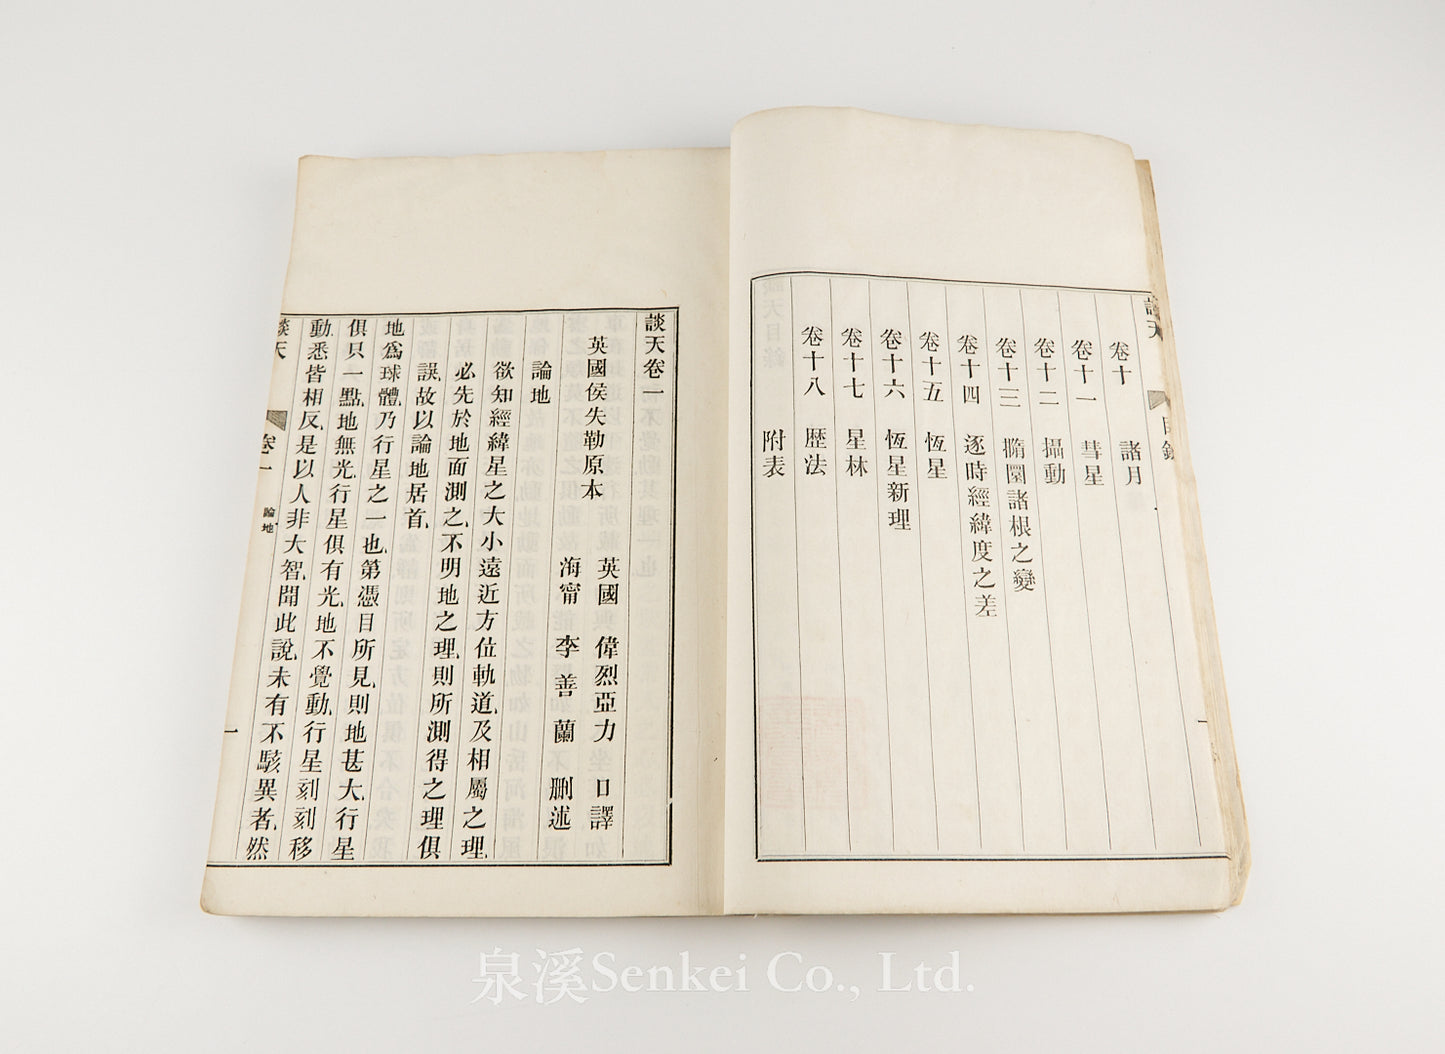 談天
目錄
卷十　諸月
卷十一　彗星
卷十二　攝動
卷十三　橢圜諸根之變
卷十四　逐時經緯度之差
卷十五　恆星
卷十六　恆星新理
卷十七　星林
卷十八　歴法
附表
談天卷一
英國侯失勒原本　英國　偉烈亞力　口譯
海甯　李善蘭　刪述
論地
欲知經緯星之大小遠近方位軌道、及相屬之理、
必先於地面測之、不明地之理、則所測得之理俱
誤、故以論地居首、
地爲球體、乃行星之一也、第憑目所見、則地甚大、行星
俱只一點、地無光、行星俱有光、地不覺動、行星刻刻移
動、悉皆相反、是以人非大智、聞此說、未有不駭異者、然
談天
卷一
論地
一
泉溪Senkei Co., Ltd.